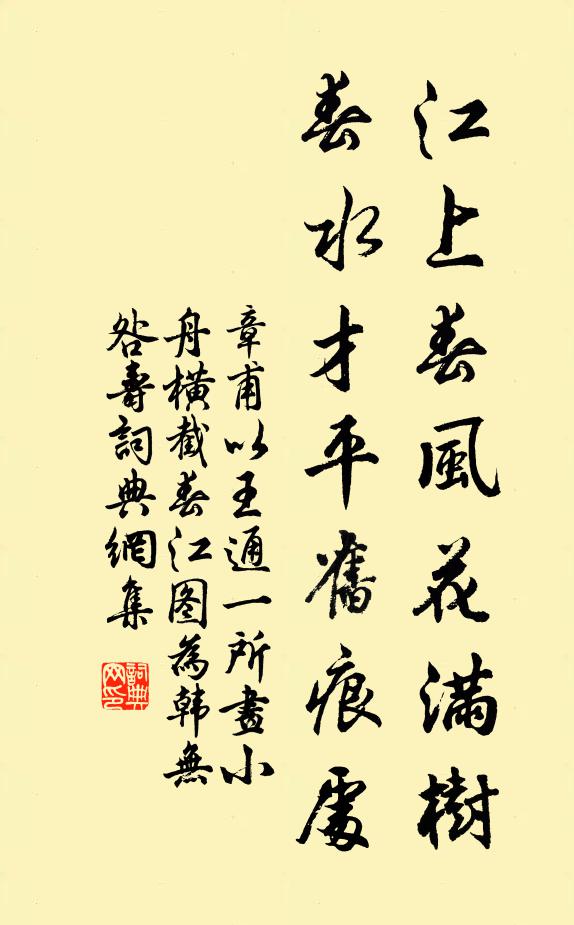 江上春風花滿樹
春水才平舊痕處
章甫以王通一所畫小
舟橫截春江图為韩無
咎壽詞典網集
詞典
网印